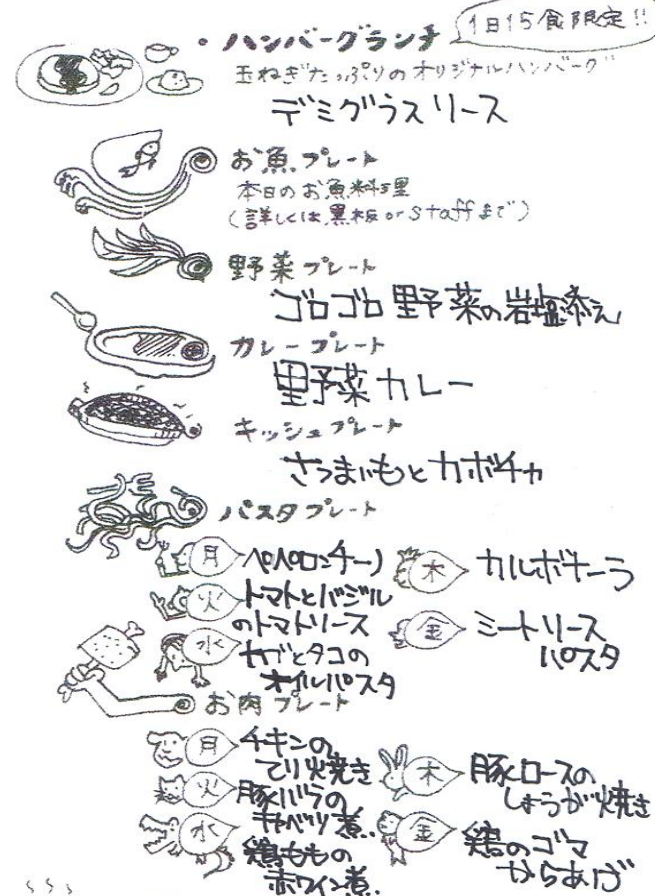 ・ハンバーグランチ
1日15食限定!!
玉ねぎたっぷりのオリジナルハンバーグ
デミグラスソース
お魚プレート
本日のお魚料理
(詳しくは黒板orstaffまで)
野菜プレート
ゴロゴロ野菜の岩塩添え
カレープレート
野菜カレー
キッシュプレート
さつまいもとカボチャ
パスタプレート
月 ペペロンチーノ
火 トマトとバジル
のトマトソース
水 カブとタコの
オイルパスタ
木 カルボナーラ
金 ミートソース
パスタ
お肉プレート
月 チキンの
てり焼き
火 豚バラの
キャベツ煮
水 鶏ももの
赤ワイン煮
木 豚ロースの
しょうが焼き
金 鶏のゴマ
からあげ